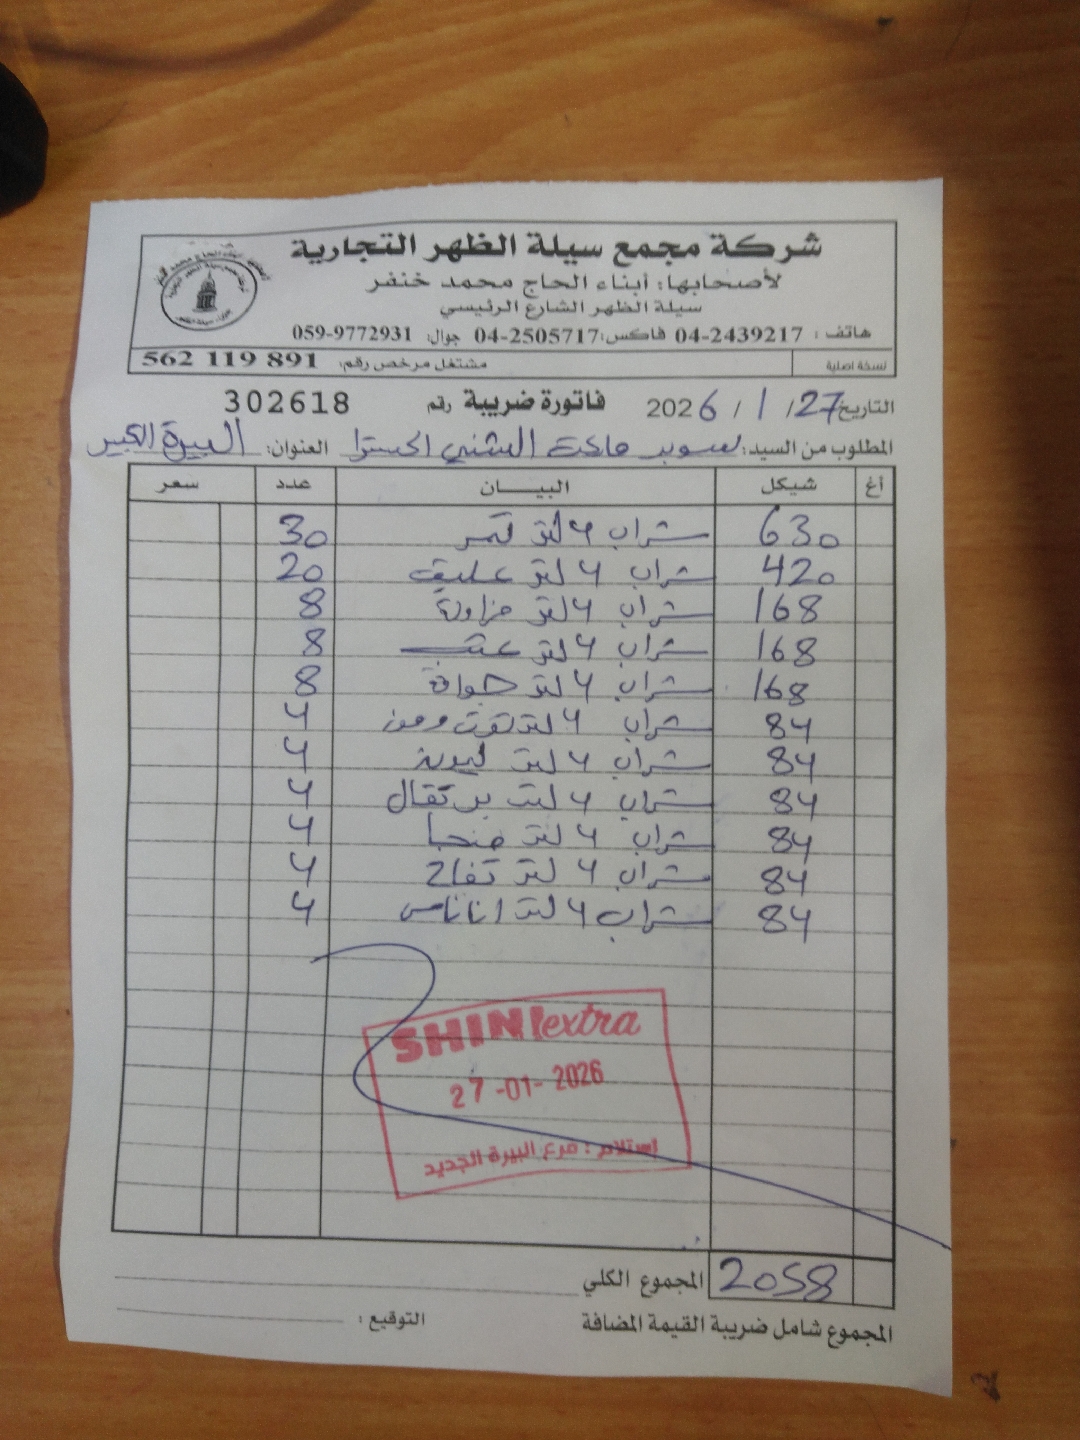 شركة مجمع سيلة الظهر التجارية
لأصحابها: أبناء الحاج محمد خنفر
سيلة الظهر الشارع الرئيسي
هاتف : 04-2439217 فاكس: 04-2505717 جوال: 059-9772931
نسخة اصلية مشتغل مرخص رقم: 562 119 891
التاريخ 27/ 1 / 2026 فاتورة ضريبة رقم 302618
المطلوب من السيد: سوبر ماركت الشني اكسترا العنوان: البيرة الكبير
أغ شيكل البيـــان عدد سعر
630 شراب 4 لتر تمر 30
420 شراب 4 لتر عليق 20
168 شراب 4 لتر 8
168 شراب 4 لتر عنب 8
168 شراب 4 لتر جوافة 8
84 شراب 4 لتر توت وموز 4
84 شراب 4 لتر ليمون 4
84 شراب 4 لتر برتقال 4
84 شراب 4 لتر منجا 4
84 شراب 4 لتر تفاح 4
84 شراب 4 لتر اناناس 4
SHINI extra
27 -01- 2026
استلام : فرع البيرة الجديد
2058 المجموع الكلي
المجموع شامل ضريبة القيمة المضافة التوقيع :